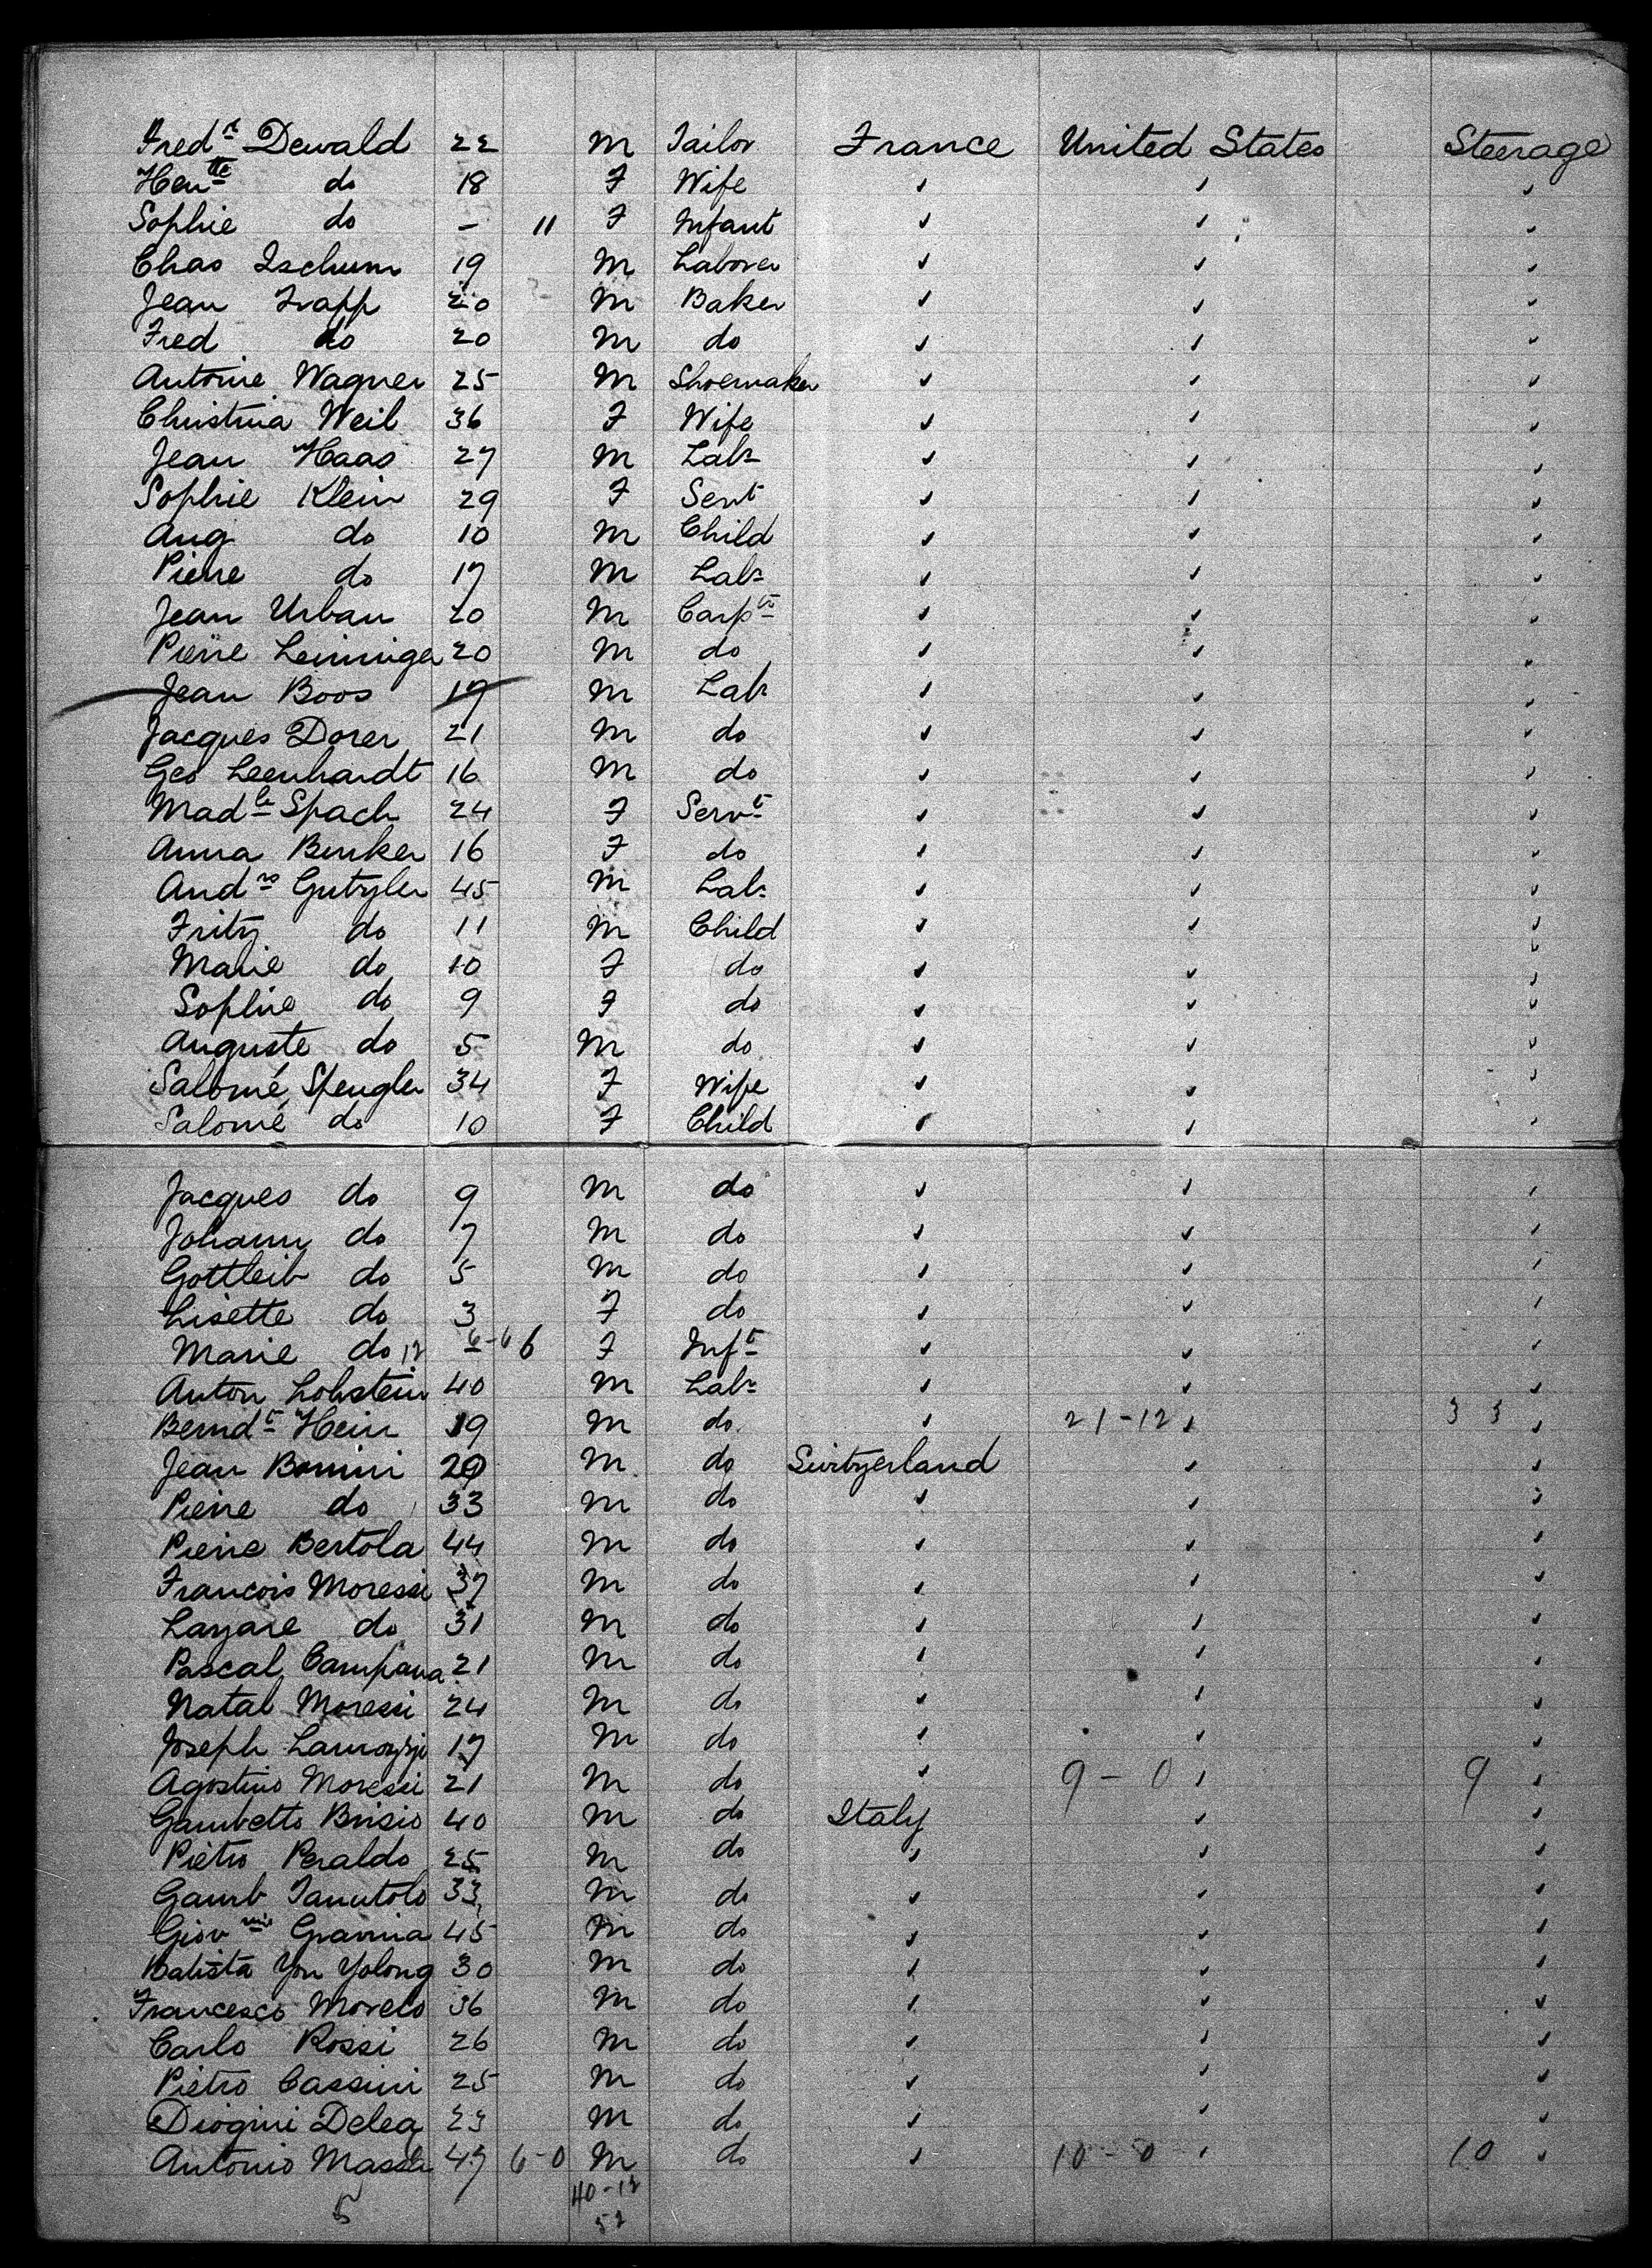 Fredk Dewald 22 M Tailor France United States Steerage
Hentte do 18 F Wife ✓ ✓ ✓
Sophie do - 11 F Infant ✓ ✓ ✓
Chas Zschum 19 M Laborer ✓ ✓ ✓
Jean Trapp 20 M Baker ✓ ✓ ✓
Fred do 20 M do ✓ ✓ ✓
Antoine Wagner 25 M Shoemaker ✓ ✓ ✓
Christina Weil 36 F Wife ✓ ✓ ✓
Jean Haas 27 M Labr ✓ ✓ ✓
Sophie Klein 29 F Servt ✓ ✓ ✓
Aug do 10 M Child ✓ ✓ ✓
Pierre do 17 M Labr ✓ ✓ ✓
Jean Urban 20 M Carptr ✓ ✓ ✓
Pierre Leininger 20 M do ✓ ✓ ✓
Jean Boos 19 M Labr ✓ ✓ ✓
Jacques Dorer 21 M do ✓ ✓ ✓
Geo Leenhardt 16 M do ✓ ✓ ✓
Madle Spach 24 F Servt ✓ ✓ ✓
Anna Benker 16 F do ✓ ✓ ✓
Andrs Gutzler 45 M Labr ✓ ✓ ✓
Fritz do 11 M Child ✓ ✓ ✓
Marie do 10 F do ✓ ✓ ✓
Sophie do 9 F do ✓ ✓ ✓
Auguste do 5 M do ✓ ✓ ✓
Salomé Spengler 34 F Wife ✓ ✓ ✓
Salomé do 10 F Child ✓ ✓ ✓
Jacques do 9 M do ✓ ✓ ✓
Johann do 7 M do ✓ ✓ ✓
Gottleib do 5 M do ✓ ✓ ✓
Lisette do 3 F do ✓ ✓ ✓
Marie do 12 - 6-6 6 F Inft ✓ ✓ ✓
Anton Lobstein 40 M Labr ✓ ✓ ✓
Berndt Hein 19 M do ✓ 21-12 ✓ 33 ✓
Jean Bonini 29 M do Switzerland ✓ ✓
Pierre do 33 M do ✓ ✓ ✓
Pierre Bertola 44 M do ✓ ✓ ✓
Francois Moressi 37 M do ✓ ✓ ✓
Lazare do 31 M do ✓ ✓ ✓
Pascal Campana 21 M do ✓ ✓ ✓
Natal Moressi 24 M do ✓ ✓ ✓
Joseph 17 M do ✓ ✓ ✓
Agostino Moressi 21 M do ✓ 9-0 ✓ 9 ✓
Gambetto Brisio 40 M do Italy ✓ ✓
Pietro Peraldo 25 M do ✓ ✓ ✓
Gamb 33 M do ✓ ✓ ✓
Giovnni Gravina 45 M do ✓ ✓ ✓
Batista Yon Yolong 30 M do ✓ ✓ ✓
Francesco Morelo 36 M do ✓ ✓ ✓
Carlo Rossi 26 M do ✓ ✓ ✓
Pietro Cassini 25 M do ✓ ✓ ✓
Diogini Delea 23 M do ✓ ✓ ✓
Antonio 47 6-0 M do ✓ 10-0 ✓ 10 ✓
5 40-12
52